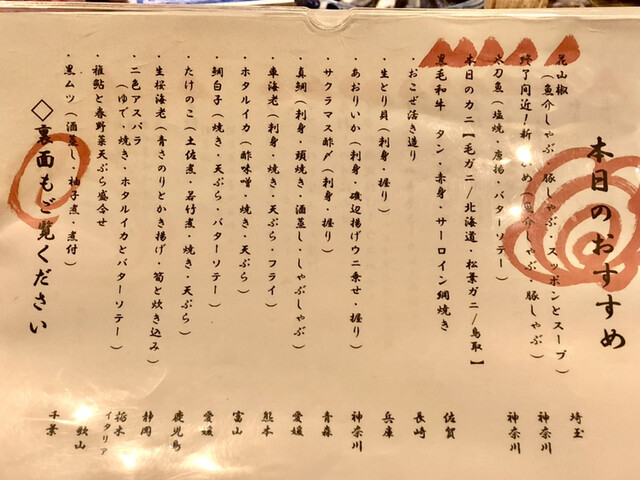 本日のおすすめ
花山椒
(魚介しゃぶ・豚しゃぶ・スッポンとスープ) 埼玉
終了間近!新 め(魚介しゃぶ・豚しゃぶ) 神奈川
太刀魚(塩焼・唐揚・バターソテー) 神奈川
本日のカニ【毛ガニ/北海道・松葉ガニ/鳥取】
黒毛和牛 タン・赤身・サーロイン網焼き 佐賀
・おこぜ活き造り 長崎
・生とり貝(刺身・握り) 兵庫
・あおりいか(刺身・磯辺揚げウニ乗せ・握り) 神奈川
・サクラマス酢〆(刺身・握り) 青森
・真鯛(刺身・頭焼き・酒蒸し・しゃぶしゃぶ) 愛媛
・車海老(刺身・焼き・天ぷら・フライ) 熊本
・ホタルイカ(酢味噌・焼き・天ぷら) 富山
・鯛白子(焼き・天ぷら・バターソテー) 愛媛
・たけのこ(土佐煮・若竹煮・焼き・天ぷら) 鹿児島
・生桜海老(青さのりとかき揚げ・筍と炊き込み) 静岡
・二色アスパラ
(ゆで・焼き・ホタルイカとバターソテー) 栃木 イタリア
・稚鮎と春野菜天ぷら盛合せ 歌山
・黒ムツ(酒蒸し・柚子煮・煮付) 千葉
◇裏面もご覧ください